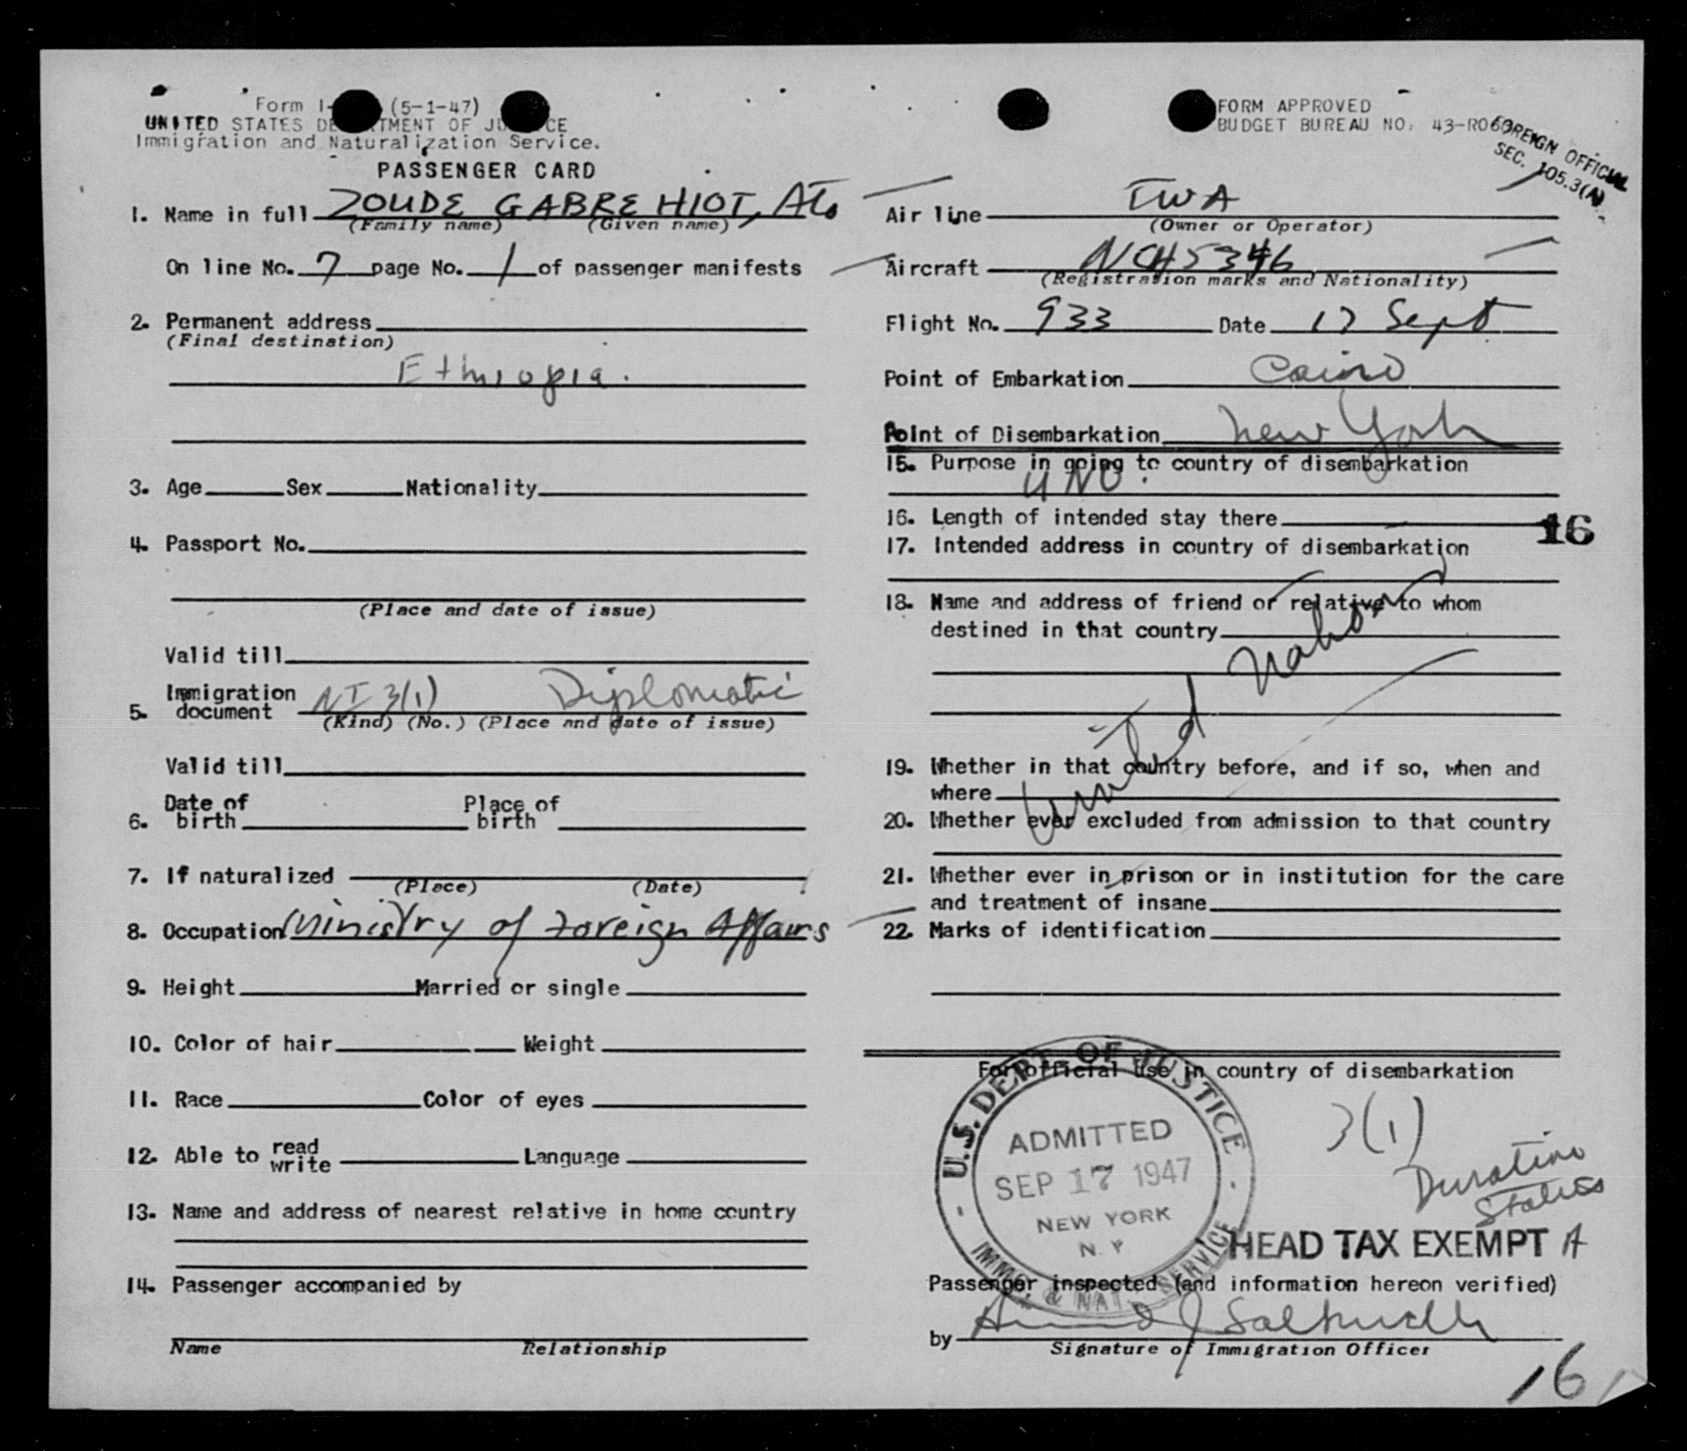 Form I- (5-1-47)
UNITED STATES DEPARTMENT OF JUSTICE
Immigration and Naturalization Service.
PASSENGER CARD
1. Name in full ZOUDE GABRE HIOT, Ato
(Family name) (Given name)
On line No. 7 page No. 1 of passenger manifests
2. Permanent address
(Final destination)
Ethiopia.
3. Age Sex Nationality
4. Passport No.
(Place and date of issue)
Valid till
5. Immigration document NI 3(1) Diplomatic
(Kind) (No.) (Place and date of issue)
Valid till
6. Date of birth Place of birth
7. If naturalized
(Place) (Date)
8. Occupation Ministry of Foreign Affairs
9. Height Married or single
10. Color of hair Weight
11. Race Color of eyes
12. Able to read write Language
13. Name and address of nearest relative in home country
14. Passenger accompanied by
Name Relationship
FORM APPROVED
BUDGET BUREAU NO. 43-R063
FOREIGN OFFICIAL
SEC. 105.3(A)
Air line TWA
(Owner or Operator)
Aircraft NCH5346
(Registration marks and Nationality)
Flight No. 933 Date 17 Sept
Point of Embarkation Cairo
Point of Disembarkation New York
15. Purpose in going to country of disembarkation
UNO.
16. Length of intended stay there
16
17. Intended address in country of disembarkation
18. Name and address of friend or relative to whom
destined in that country
United Nations
19. Whether in that country before, and if so, when and
where
20. Whether ever excluded from admission to that country
21. Whether ever in prison or in institution for the care
and treatment of insane
22. Marks of identification
For official use in country of disembarkation
U.S. DEPT. OF JUSTICE
ADMITTED
SEP 17 1947
NEW YORK
N. Y
IMM. & NAT. SERVICE
3(1)
Duration
Status
HEAD TAX EXEMPT A
Passenger inspected (and information hereon verified)
by
Signature of Immigration Officer
16